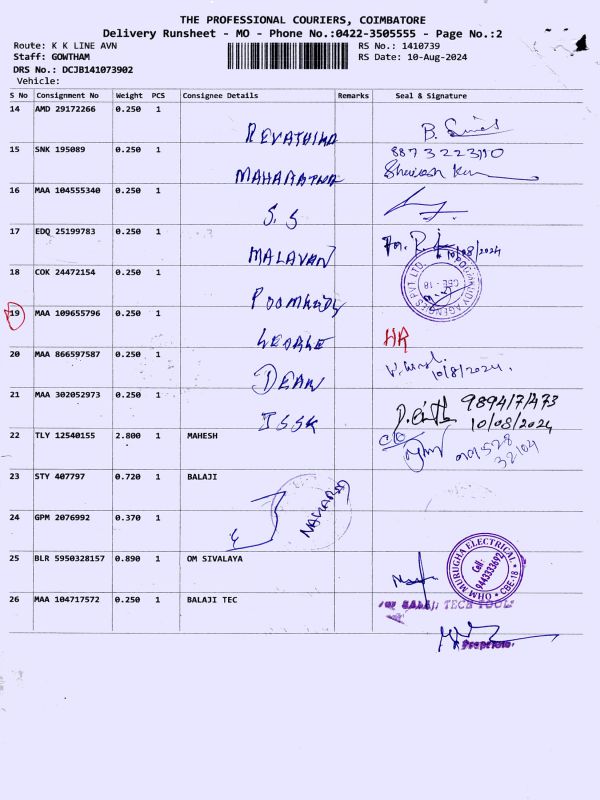 THE PROFESSIONAL COURIERS, COIMBATORE
Delivery Runsheet - MO - Phone No.:0422-3505555 - Page No.:2
Route: K K LINE AVN
RS No.: 1410739
Staff: GOWTHAM
RS Date: 10-Aug-2024
DRS No.: DCJB141073902
Vehicle:
S No Consignment No Weight PCS Consignee Details Remarks Seal & Signature
14 AMD 29172266 0.250 1
REVATHIKA
15 SNK 195089 0.250 1
MAHARATHA
16 MAA 104555340 0.250 1
S.S
17 EDQ 25199783 0.250 1
10/08/2024
MALAVAN
18 COK 24472154 0.250 1
CBE - 18
19 MAA 109655796 0.250 1
GEORGE HR
20 MAA 866597587 0.250 1
10/8/2024.
DEAN
21 MAA 302052973 0.250 1
ISSK
10/08/2024
22 TLY 12540155 2.800 1 MAHESH
23 STY 407797 0.720 1 BALAJI
24 GPM 2076992 0.370 1
25 BLR 5950328157 0.890 1 OM SIVALAYA
OHM MURUGHA ELECTRICAL
Cell:
9443333692
CBE-18
26 MAA 104717572 0.250 1 BALAJI TEC
BALAJI TECH TOOL